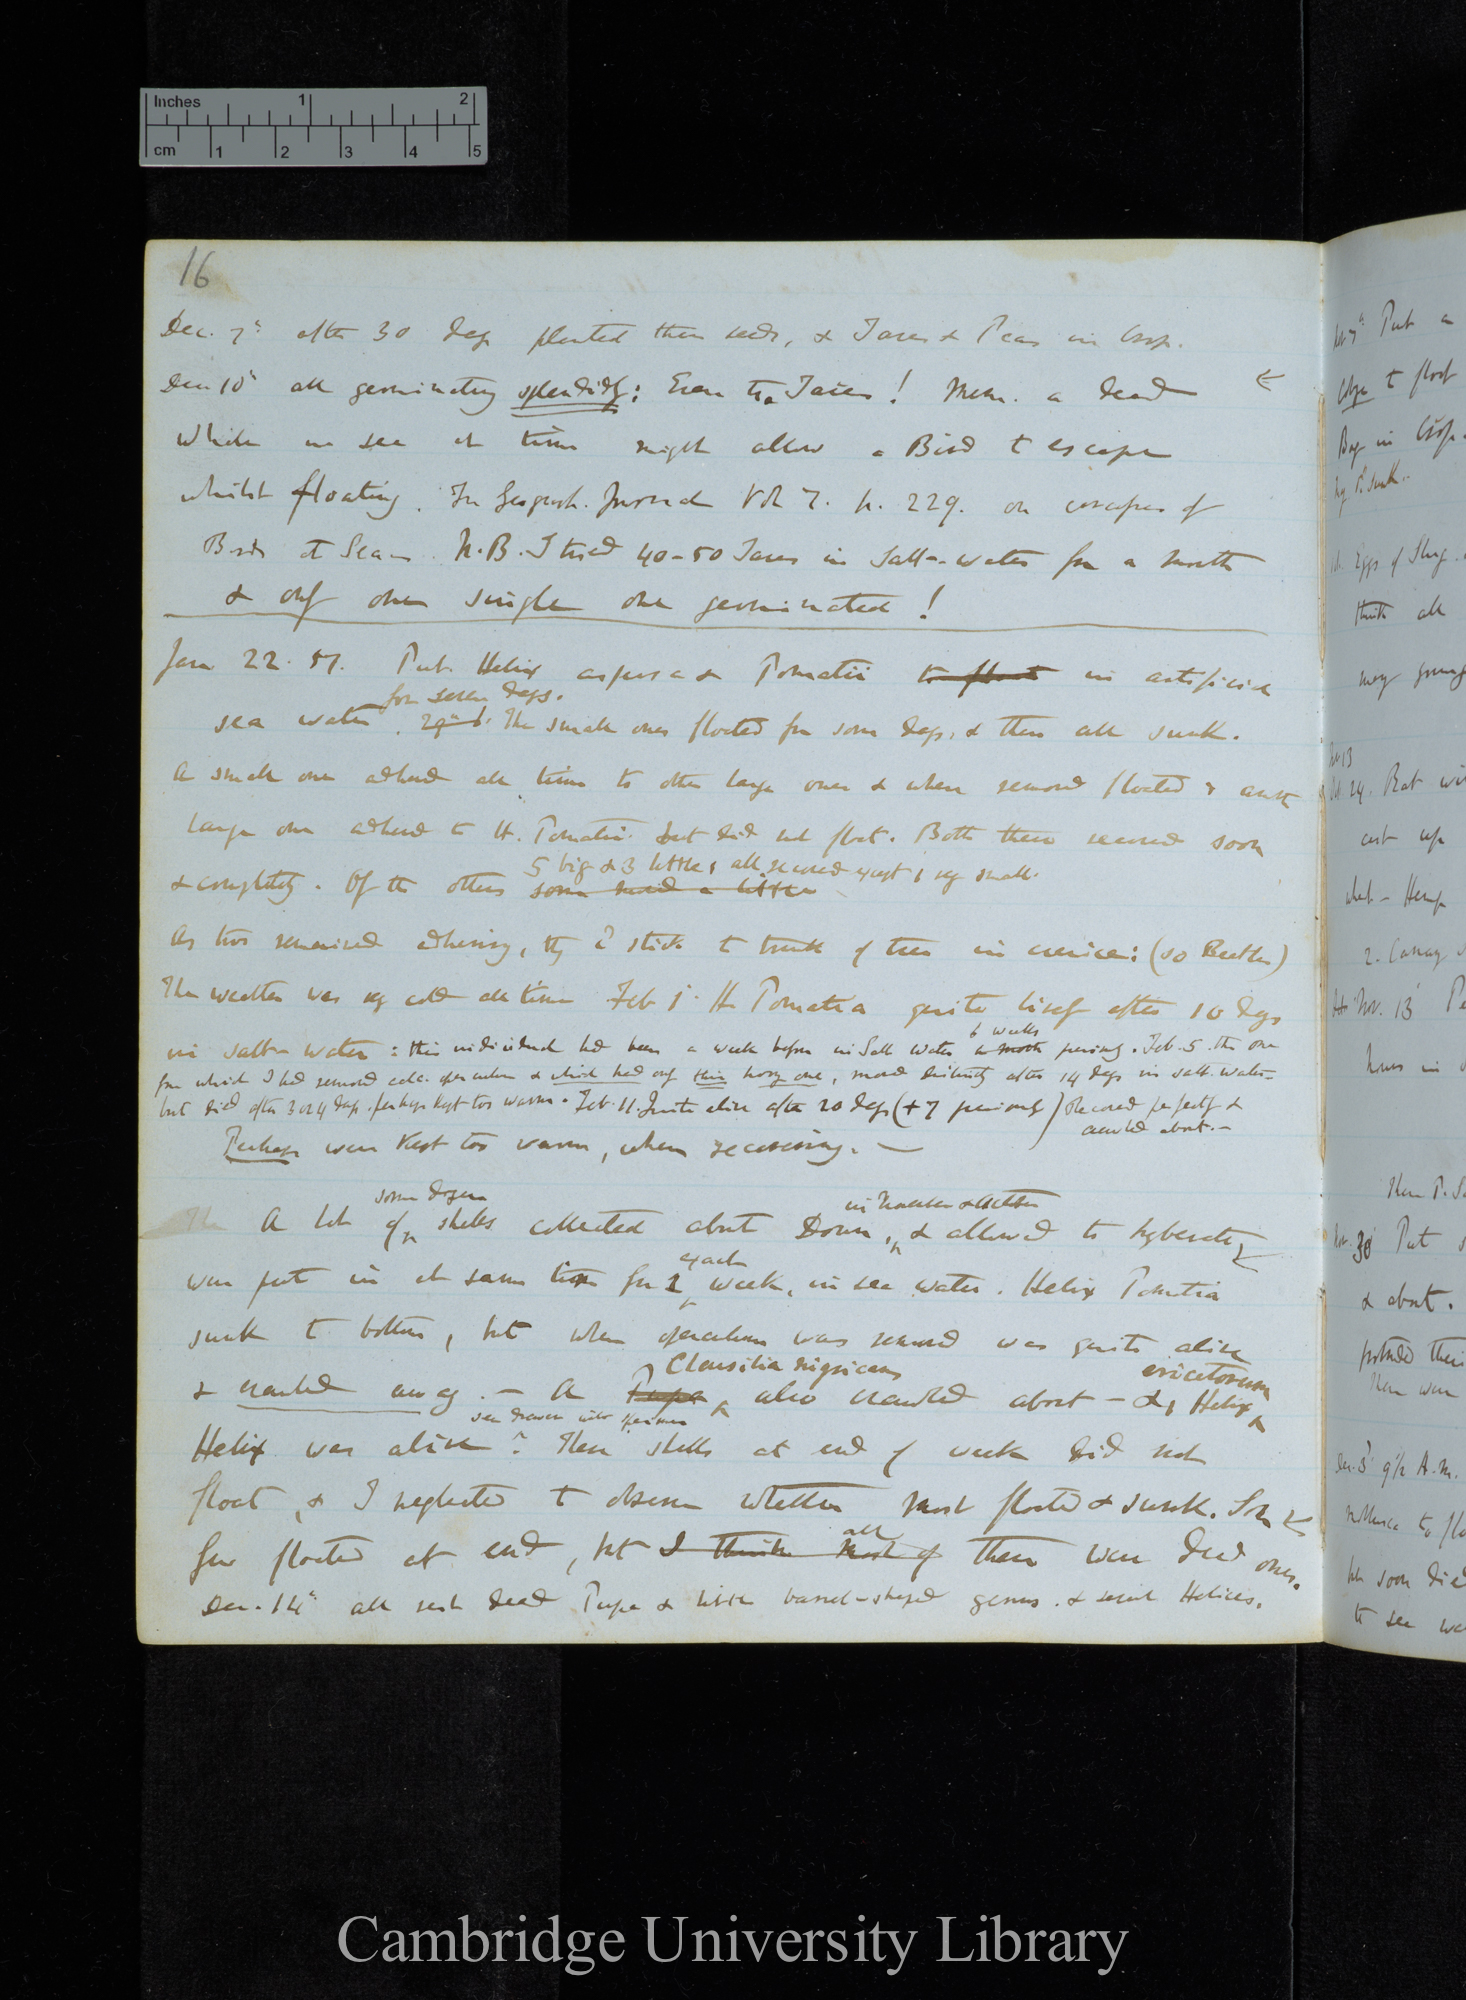 Inches 1 2
cm 1 2 3 4 5
16
Dec. 7th after 30 days planted these seeds, & Tares & Peas in Crop.
Dec 10th all germinating splendidly: Even the Tares! Mem. a dead
whale in sea at time might allow a Bird to escape
whilst floating. In Geograph. Journal Vol 7. p. 229. on corpses of
Birds at Sea. N.B. I tried 40-50 Tares in Salt-water for a month
& only one single one germinated!
Jan 22. 57. Put Helix aspersa & Pomatii to float in artificial
for seven days.
sea water. 29th The small ones floated for some days, & then all sunk.
A small one adhered all time to other large ones & when removed floated &
large one adhered to H. Pomatii but did not float. Both these recovered soon
5 big & 3 little, all recovered except 1 very small.
& completely. Of the others some a little
As two remained adhering, they stick to trunk of trees in crevices: (so Beetles)
The weather was very cold all time Feb 1. H Pomatia quite lively after 10 days
6 weeks
in salt-water: this individual had been a week before in Salt water a month previously. Feb. 5. the one
from which I had removed calc. operculum & which had only thin horny one, moved distinctly after 14 days in salt-water-
but died after 3 or 4 days. perhaps kept too warm. Feb. 11. Quite alive after 20 days (+ 7 previously) Recovered perfectly &
crawled about.-
Perhaps were kept too warm, when recovering. —
some dozen
in November & October
A lot of shells collected about Down, & allowed to hybernate
exactly
were put in at same time for 1 week, in sea water. Helix Pomatia
sunk to bottom, but when operculum was removed was quite alive
Clausilia nigricans
ericetorum
& crawled away. — A Pupa also crawled about — & 1 Helix
see drawer with specimen
Helix was alive? These shells at end of week did not
float, & I neglected to observe whether most floated & sunk. Some
all
few floated at end, but I think most of them were dead ones.
Dec. 14th all rest dead Pupa & little barrel-shaped genus. & several Helices.
Put a
to float
Bag in Crop.
Eggs of Slug.
think all
may young
24. Bat
cast up
wheat - Hemp
2. Canary
Nov. 13
hours in
Nov. 30 Put
& about.
Dec. 3d 9½ A.m.
mollusca to
soon died
to sea
Cambridge University Library